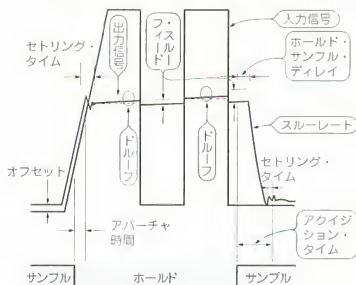 セトリング・
タイム
出力信号
フィード
・スルー
入力信号
ホールド・
サンプル・
ディレイ
ドループ
ドループ
スルーレート
オフセット
セトリング・
タイム
アパーチャ
時間
アクイジ
ション・
タイム
サンプル
ホールド
サンプル